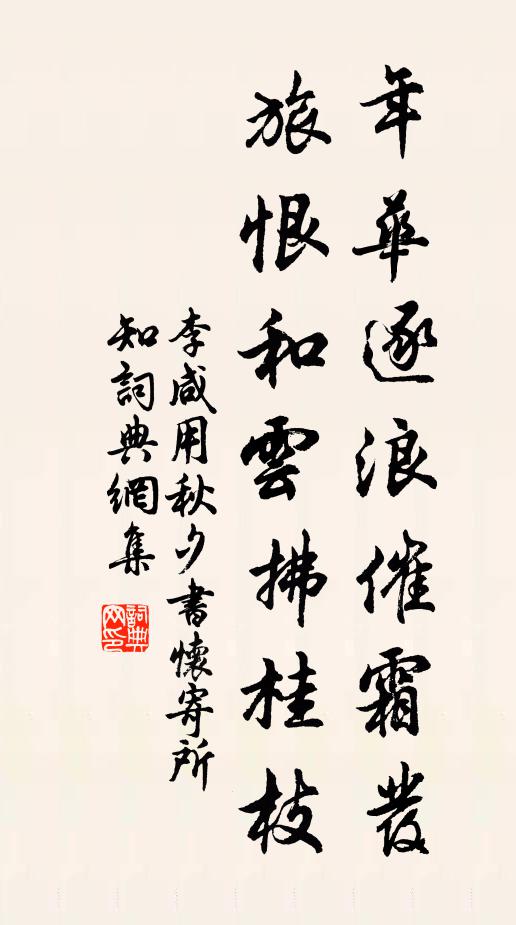 年華逐浪催霜發
旅恨和雲拂桂枝
李咸用秋夕書懷寄所
知詞典網集
詞典
网印